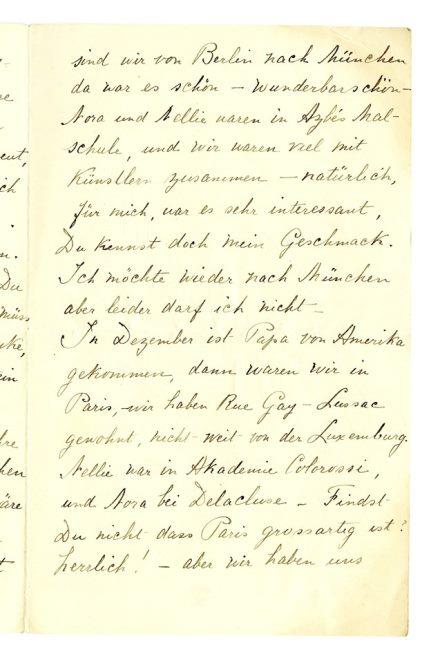 sind wir von Berlin nach München
da war es schön – wunderbar schön –
Nora und Nellie waren in Azbés Mal-
schule, und wir waren viel mit
Künstlern zusammen – natürlich,
für mich, war es sehr interessant,
Du kennst doch mein Geschmack.
Ich möchte wieder nach München
aber leider darf ich nicht –
In Dezember ist Papa von Amerika
gekommen, dann waren wir in
Paris, – wir haben Rue Gay-Lussac
gewohnt, nicht weit von der Luxemburg.
Nellie war in Akademie Colorossi,
und Nora bei Delacluse – Findst
Du nicht dass Paris grossartig ist?
herrlich! – aber wir haben uns